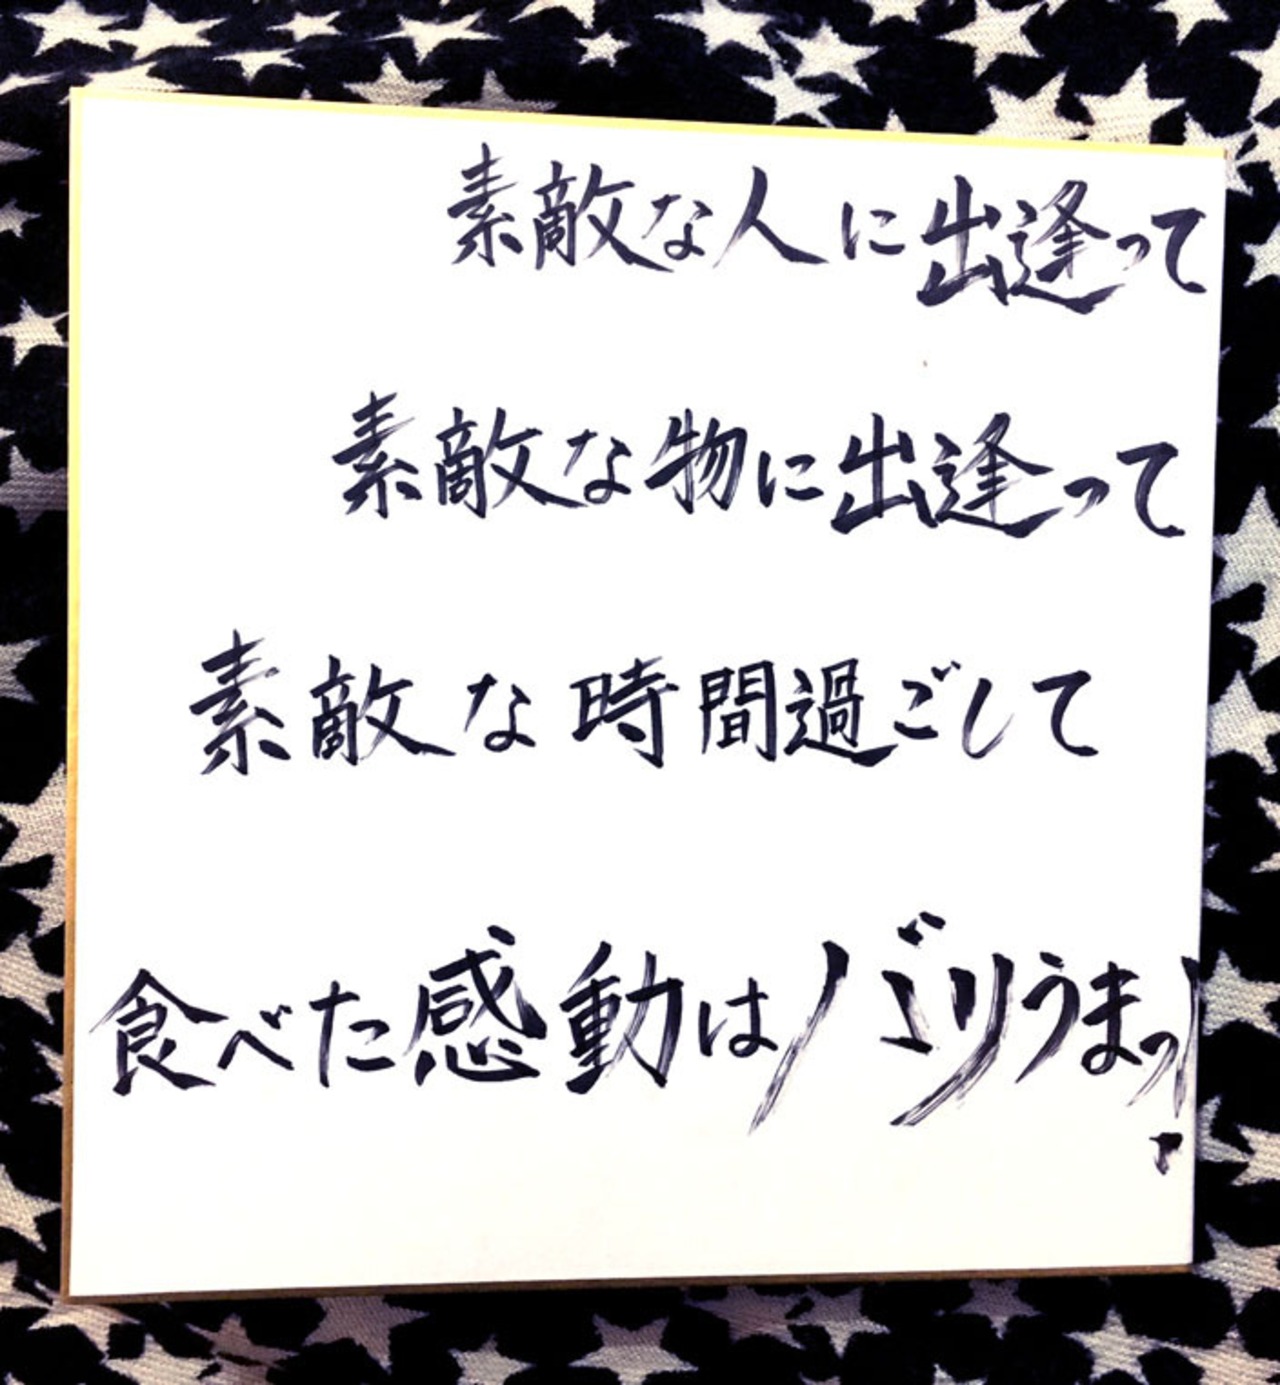 素敵な人に出逢って
素敵な物に出逢って
素敵な時間過ごして
食べた感動はバリうまっ!